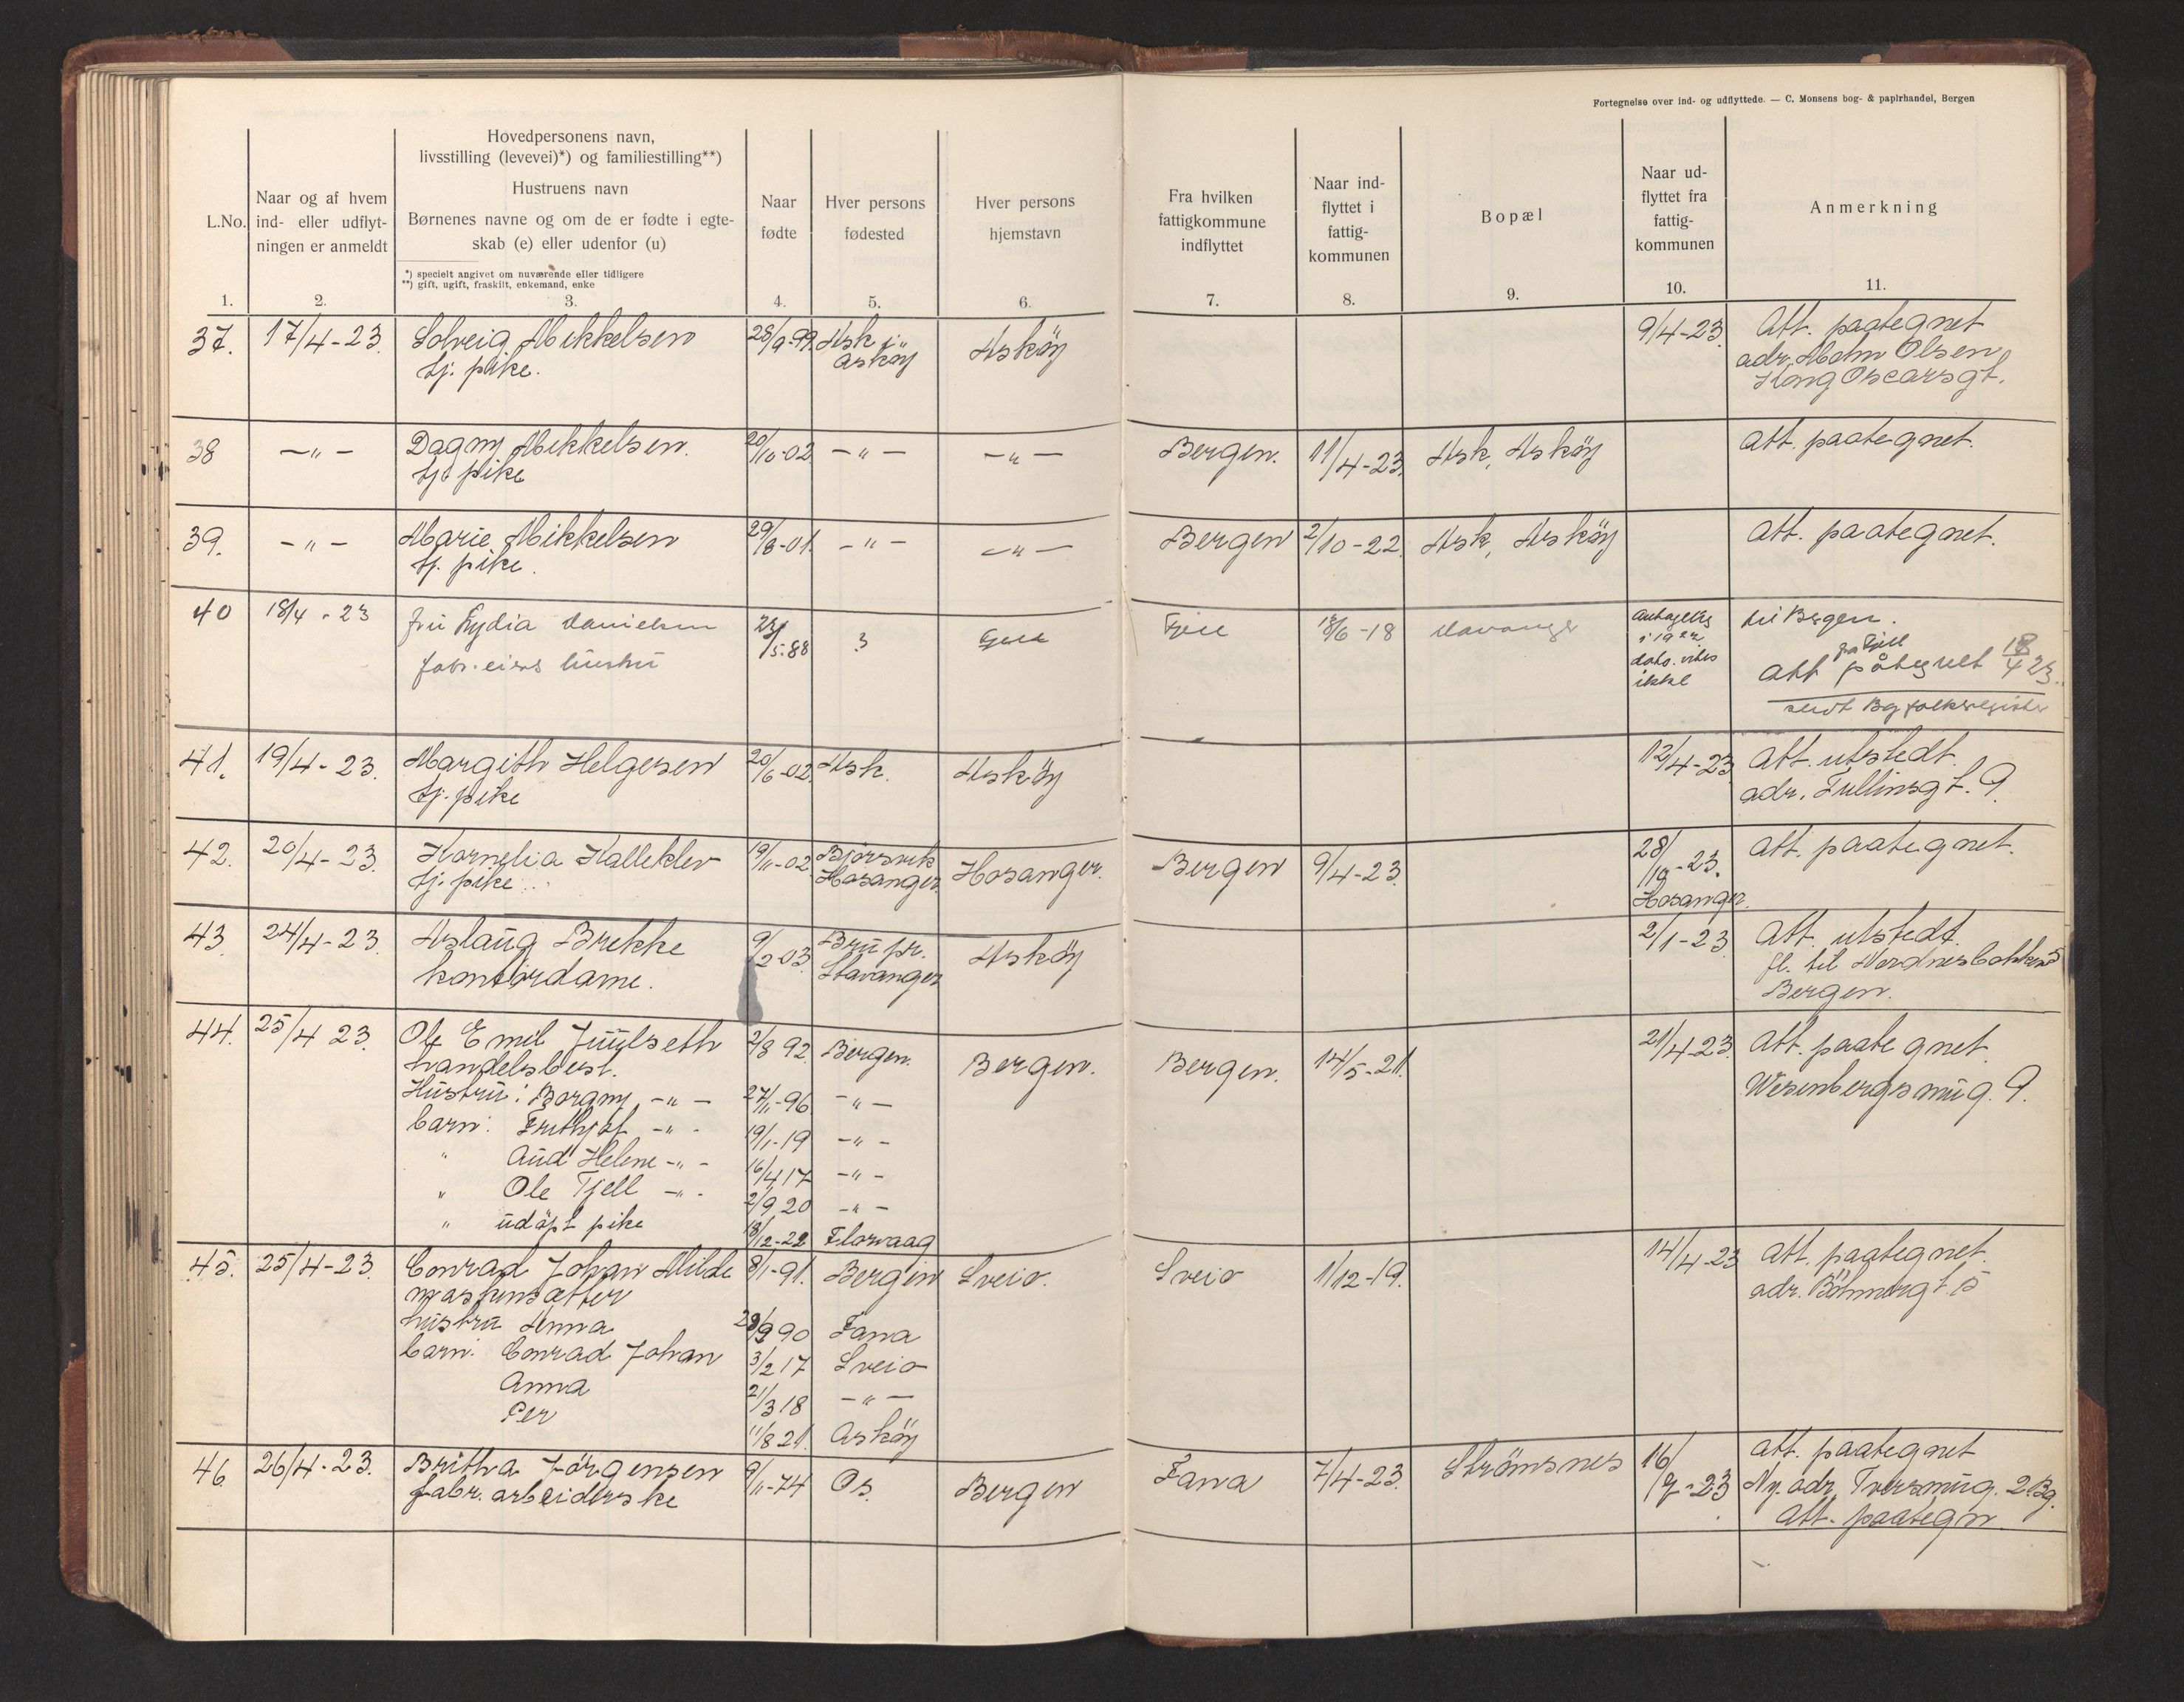 Fortegnelse over ind- og udflyttede. — C. Monsens bog- & papirhandel, Bergen
L.No.
1.
Naar og af hvem
ind- eller udflyt-
ningen er anmeldt
2.
Hovedpersonens navn,
livsstilling (levevei)*) og familiestilling**)
Hustruens navn
Børnenes navne og om de er fødte i egte-
skab (e) eller udenfor (u)
*) specielt angivet om nuværende eller tidligere
**) gift, ugift, fraskilt, enkemand, enke
3.
Naar
fødte
4.
Hver persons
fødested
5.
Hver persons
hjemstavn
6.
Fra hvilken
fattigkommune
indflyttet
7.
Naar ind-
flyttet i
fattig-
kommunen
8.
Bopæl
9.
Naar ud-
flyttet fra
fattig-
kommunen
10.
Anmerkning
11.
37. 17/4-23. Solveig Mikkelsen 28/9-99. Ask i Askøy 9/4-23. Att. paategnet
tj. pike. Askøy adr. Olsen
Kong Oscarsgt.
38 -"- Dagny Mikkelsen. 20/10-02 -"- -"- Bergen. 11/4-23. Ask, Askøy Att. paategnet.
tj. pike
39. -"- Marie Mikkelsen 29/8-01. -"- -"- Bergen 2/10-22. Ask, Askøy Att. paategnet.
tj. pike.
40 18/4-23 fru Lydia Danielsen 23/5-88 ? Fjell Fjell 18/6-18 antagelig til Bergen.
fabr. eiers hustru i 1922 fra Fjell
dato vites att påtegnet 18/4 23.
ikke sendt Bg folkeregister
41. 19/4-23. Margith Helgesen 20/6-02 Ask. Askøy 12/4-23 Att. utstedt.
tj. pike adr. Tullinsgt. 9.
42. 20/4-23. Kornelia Kalleklev 19/11-02 Bjørsvik Hosanger. Bergen 9/4-23. 28/10-23. Att. paategnet.
tj. pike Hosanger Hosanger.
43. 24/4-23. Aslaug Brekke 9/2 03. Bru pr. Askøy 2/1-23 Att. utstedt.
kontordame. Stavanger fl. til Nordnesbakken 5
Bergen.
44. 25/4 23. Ole Emil Juulseth 2/8 92. Bergen. Bergen. Bergen. 14/5-21. 21/4-23 Att. paategnet.
handelsbest. Wesenbergsmug. 9.
Hustru: Borgny -"- 27/11-96 -"-
barn: Frithjof -"- 19/1-19 -"-
" Aud Helene -"- 16/4 17 -"-
" Ole Tjell -"- 2/9 20 -"-
" udøpt pike 18/12-22 Florvaag
45. 25/4-23. Conrad Johan Milde 8/1-91. Bergen Sveio. Sveio 1/12-19. 14/4-23 Att. paategnet.
maskinsætter adr. Bøhmergt. 5
hustru Anna 90 Fana
barn: Conrad Johan 3/2 17 Sveio
Anna 21/3 18 -"-
Per 11/8 21. Askøy
46 26/4-23. Britha Jørgensen 9/11-74 Os. Bergen Fana 7/4-23. Strømsnes 16/7-23 Att. paategnet
fabr. arbeiderske Ny. adr. Tversmug. 2. Bg.
Att. paategn